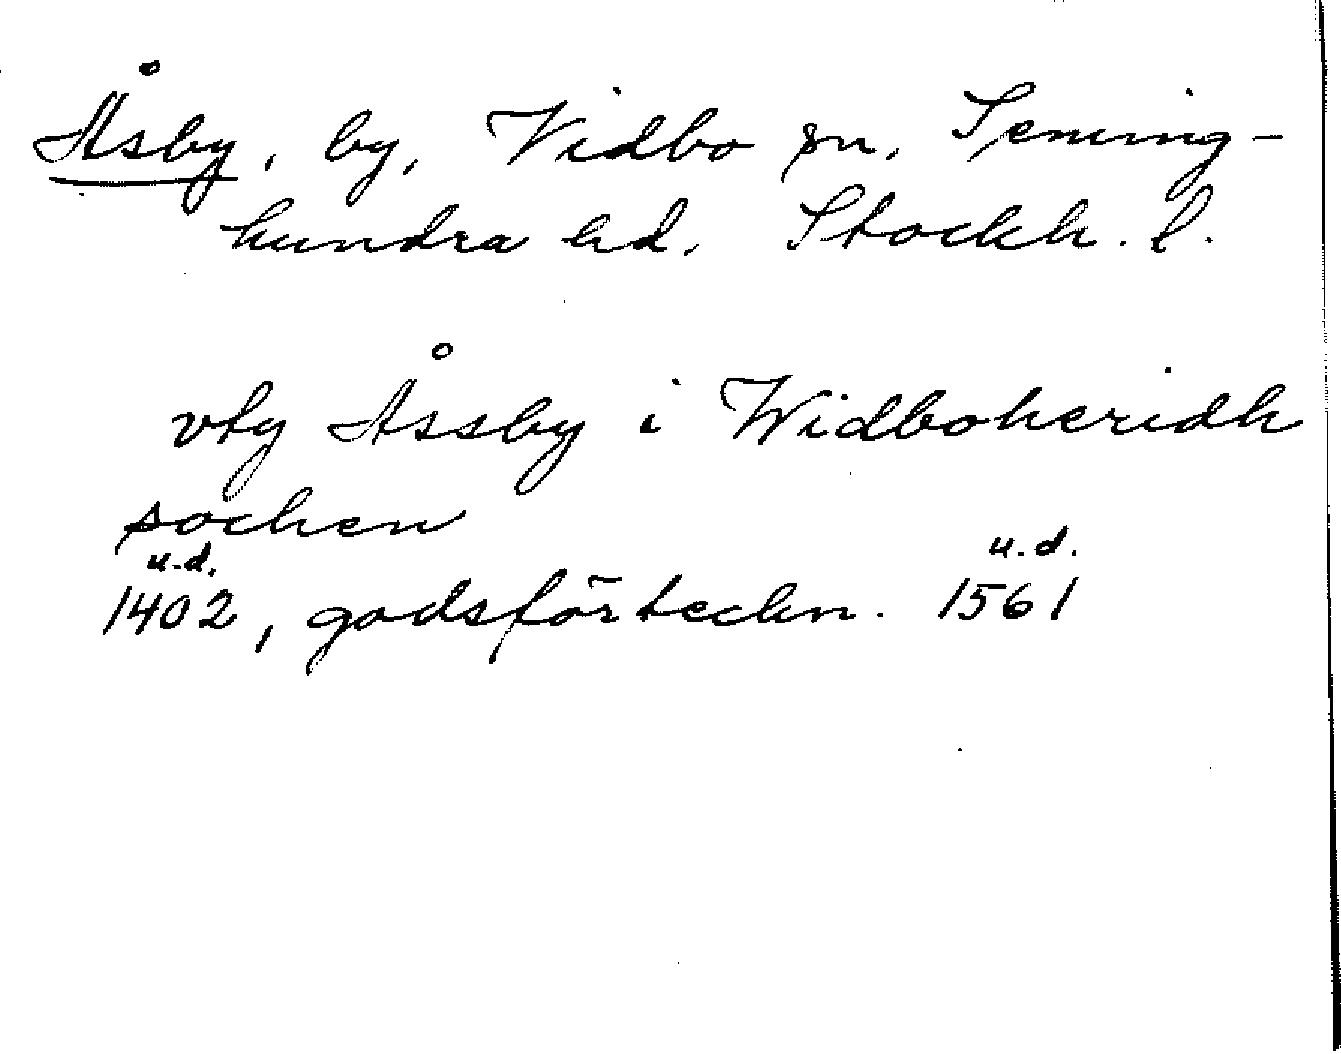 Åsby, by, Vidbo sn, Seming-
hundra hd, Stockh. l.
vty Åssby i Widboheridh
sochen
u.d. u.d.
1402, godsförteckn. 1561